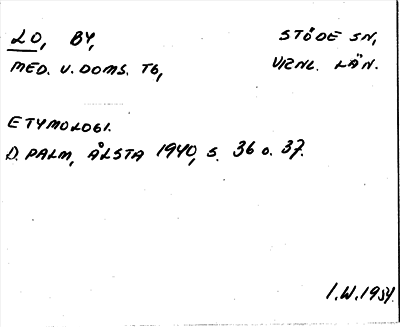 LO, BY, STÖDE SN,
MED. V. DOMS. TG, VRNL. LÄN.
ETYMOLOGI.
D. PALM, ÅLSTA 1940, S. 36 O. 37.
I.W.1954.